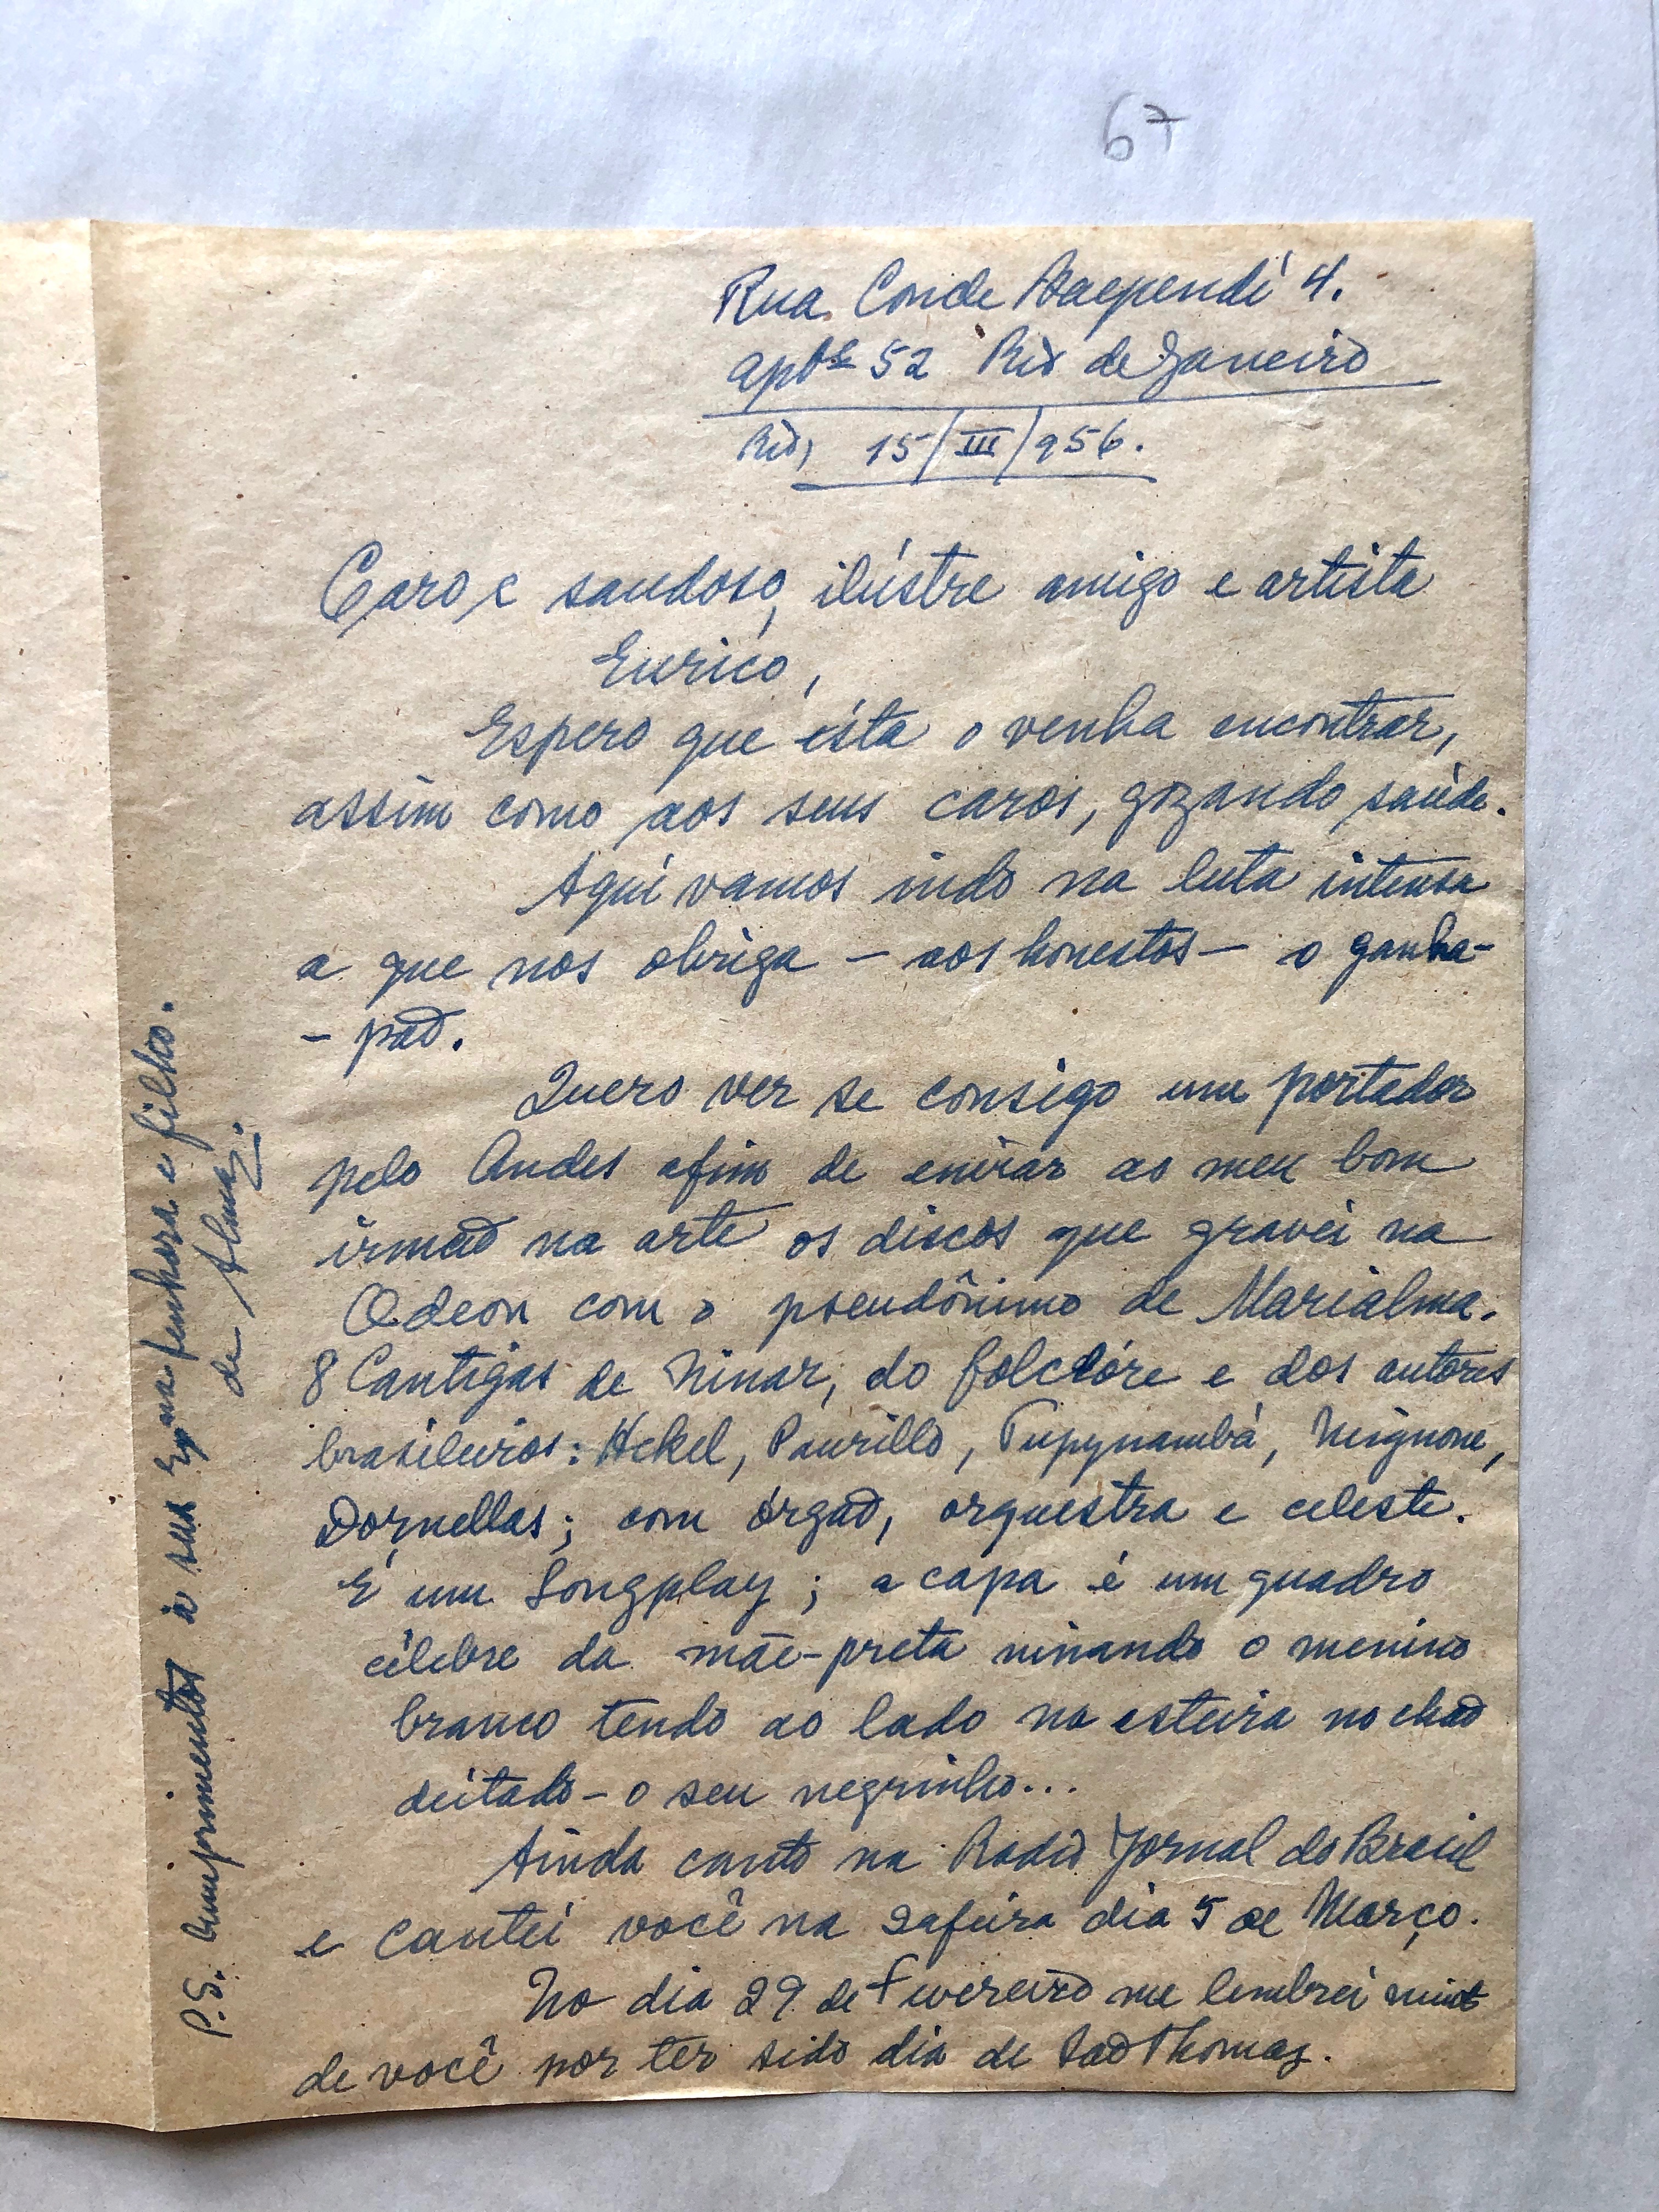 67
Rua Conde Baependí 4.
aptº 52 Rio de Janeiro
Rio, 15/III/956.
Caro e saudoso, ilústre amigo e artista
Eurico,
Espero que ésta o venha encontrar,
assim como aos seus caros, gozando saúde.
Aquí vamos indo na luta intensa
a que nos obriga — aos honestos — o ganha-
- pão.
Quero ver se consigo um portador
pelo Andes afim de enviar ao meu bom
irmão na arte os discos que gravei na
Odeon com o pseudônimo de Marialma.
8 Cantigas de Ninar, do folclóre e dos autores
brasileiros: Hekel, Paurillo, Tupynambá, Mignone,
Dornellas; com órgão, orquestra e celeste.
É um Longplay; a capa é um quadro
célebre da mãe-preta ninando o menino
branco tendo ao lado na esteira no chão
deitado - o seu negrinho...
Ainda canto na Radio Jornal do Brasil
e cantei você na 2afeira dia 5 de Março.
No dia 29 de Fevereiro me lembrei muito
de você por ter sido dia de São Thomaz.
P.S. Cumprimentos à sua Exma senhora e filho.
de Alma.